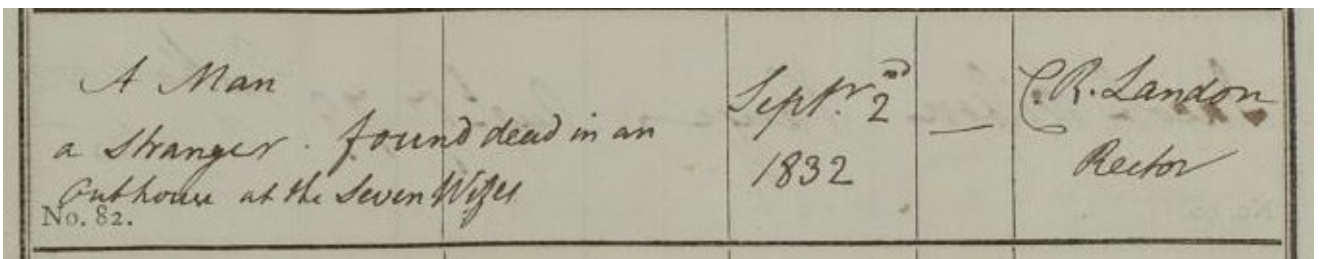 A Man
a Stranger. found dead in an
Outhouse at the Seven Wifes
No. 82.
Septr. 2nd
1832
—
C. R. Landon
Rector